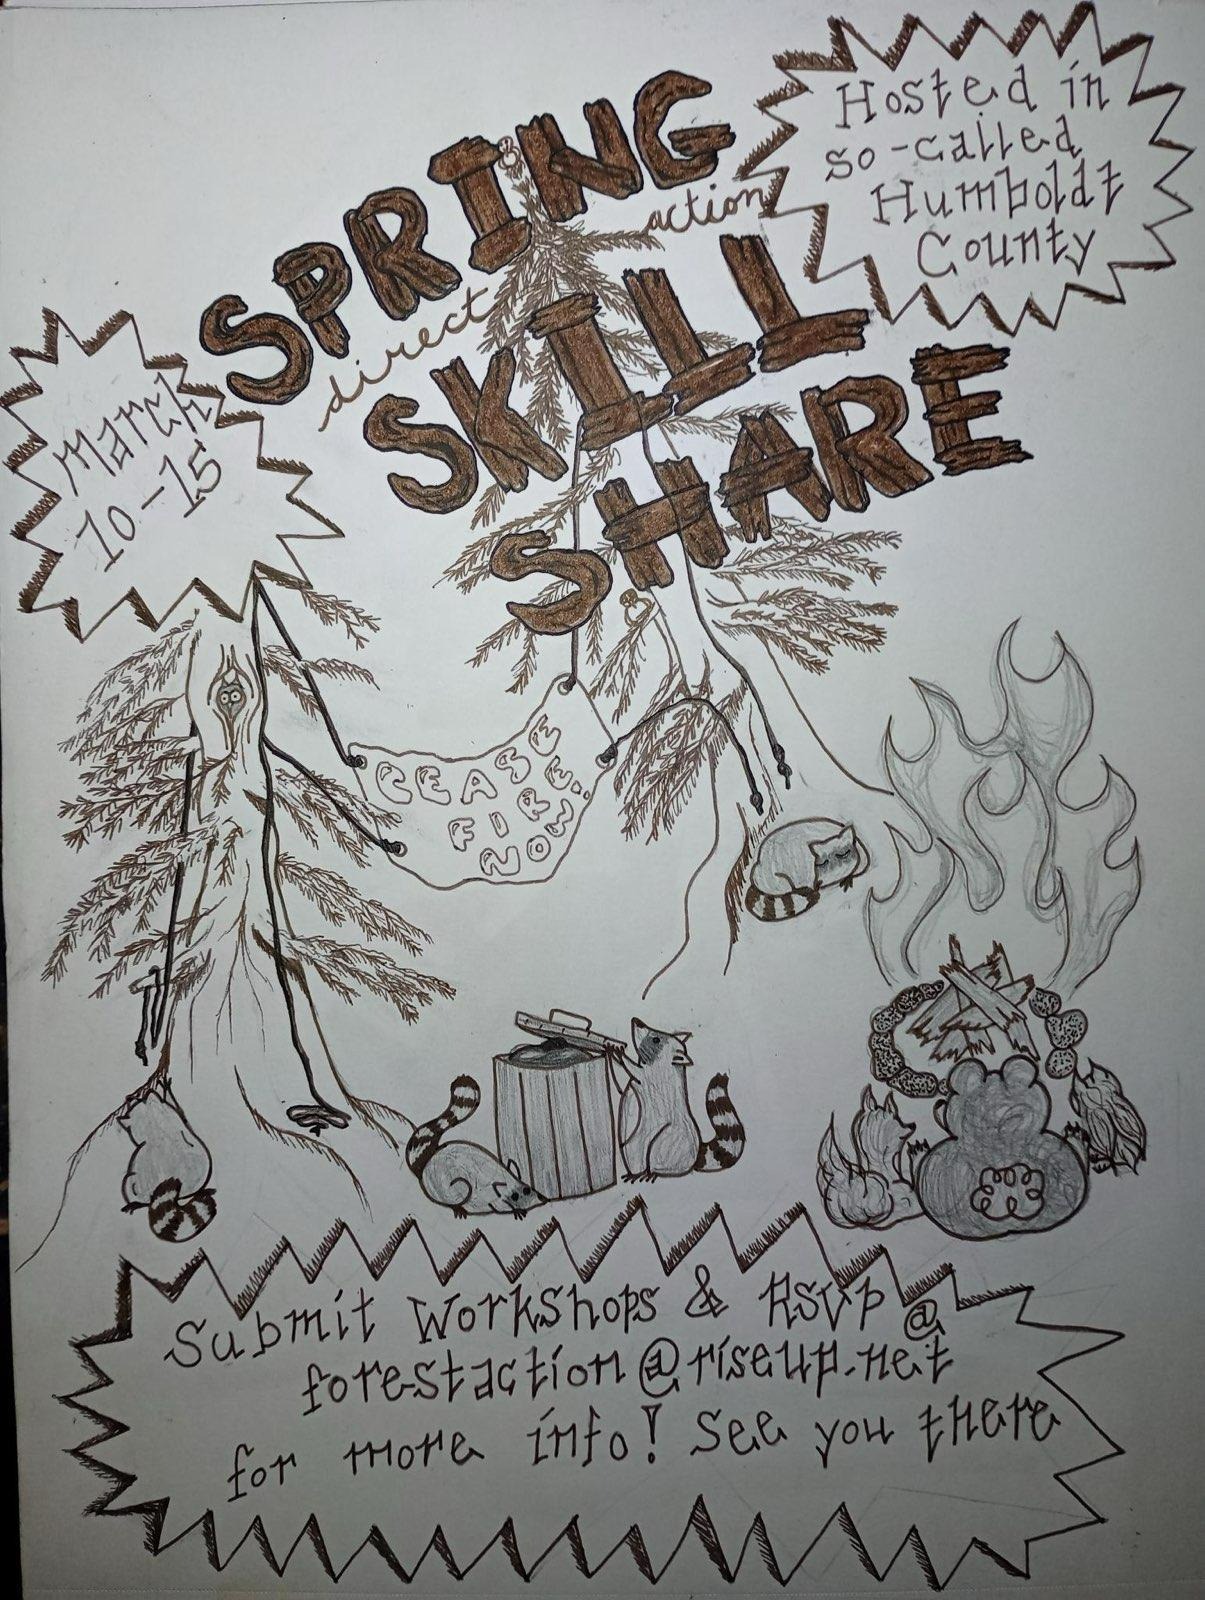 SPRING
direct action
SKILL
SHARE
Hosted in
so-called
Humboldt
County
March
10-15
CEASE
FIRE
NOW!
Submit Workshops & RSVP @
forestaction@riseup.net
for more info! See you there